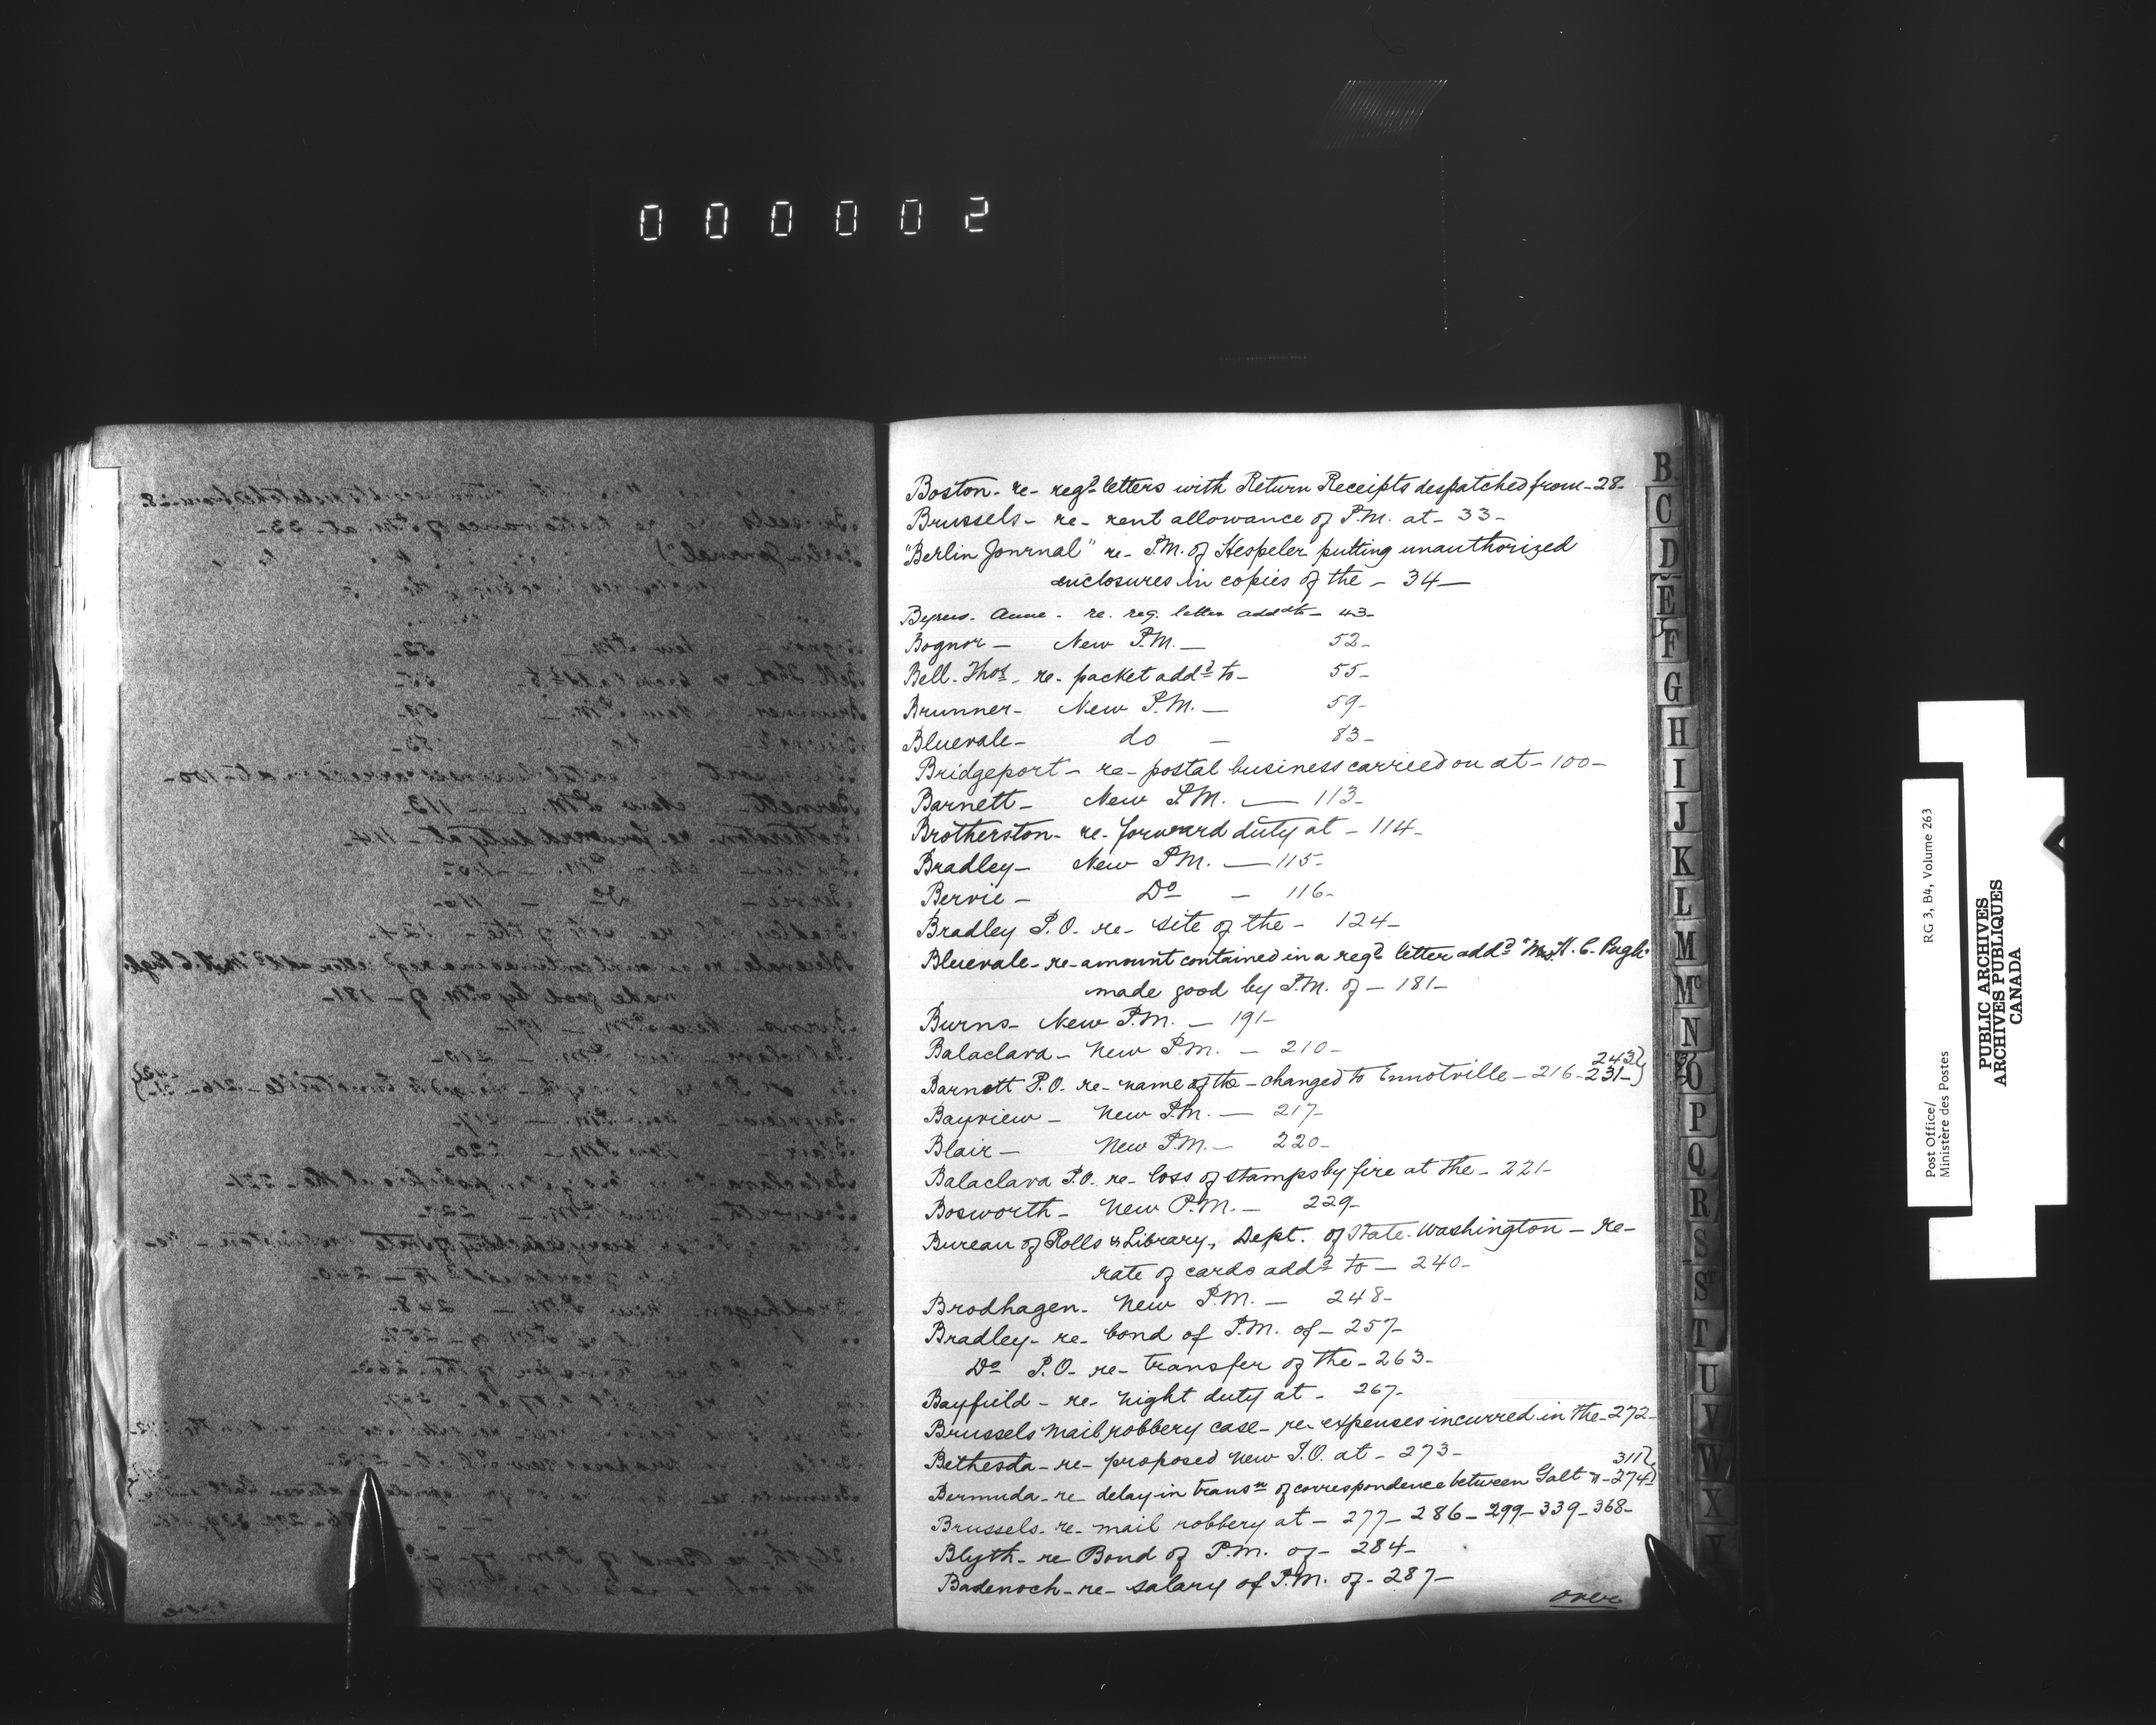 000002
Boston - re - regd letters with Return Receipts despatched from - 28 -
Brussels - re - rent allowance of P.M. at - 33 -
"Berlin Journal" re - P.M. of Hespeler putting unauthorized
enclosures in copies of the - 34 -
Anne - re. reg. letter addd to - 43 -
Bognor - New P.M. - 52 -
Bell - Thos - re - packet addd to - 55 -
Brunner - New P.M. - 59 -
Bluevale - do - 83 -
Bridgeport - re - postal business carried on at - 100 -
Barnett - New P.M. - 113 -
Brotherston - re - forward duty at - 114 -
Bradley - New P.M. - 115 -
Bervie - Do - 116 -
Bradley P.O. re - site of the - 124 -
Bluevale - re - amount contained in a regd letter addd "Mrs. H. C. Pugh"
made good by P.M. of - 181 -
Burns - New P.M. - 191 -
Balaclava - New P.M. - 210 -
243 }
Barnett P.O. re - name of the - changed to Ennotville - 216 - 231 - }
Bayview - New P.M. - 217 -
Blair - New P.M. - 220 -
Balaclava P.O. re - loss of stamps by fire at the - 221 -
Bosworth - New P.M. - 229 -
Bureau of Rolls & Library, Dept. of State - Washington - re -
rate of cards addd to - 240 -
Brodhagen - New P.M. - 248 -
Bradley - re - bond of P.M. of - 257 -
Do P.O. re - transfer of the - 263 -
Bayfield - re - night duty at - 267 -
Brussels mail robbery case - re - expenses incurred in the - 272 -
Bethesda - re - proposed New P.O. at - 273 -
311 }
Bermuda - re delay in transn of correspondence between Galt " - 274 }
Brussels - re - mail robbery at - 277 - 286 - 299 - 339 - 368 -
Blyth - re Bond of P.M. of - 284 -
Badenoch - re - salary of P.M. of - 287 -
over
B
C
D
E
F
G
H
I
J
K
L
M
Mc
N
O
P
Q
R
S
St
T
U
V
W
X
Y
Post Office/ RG 3, B4, Volume 263
Ministère des Postes
PUBLIC ARCHIVES
ARCHIVES PUBLIQUES
CANADA